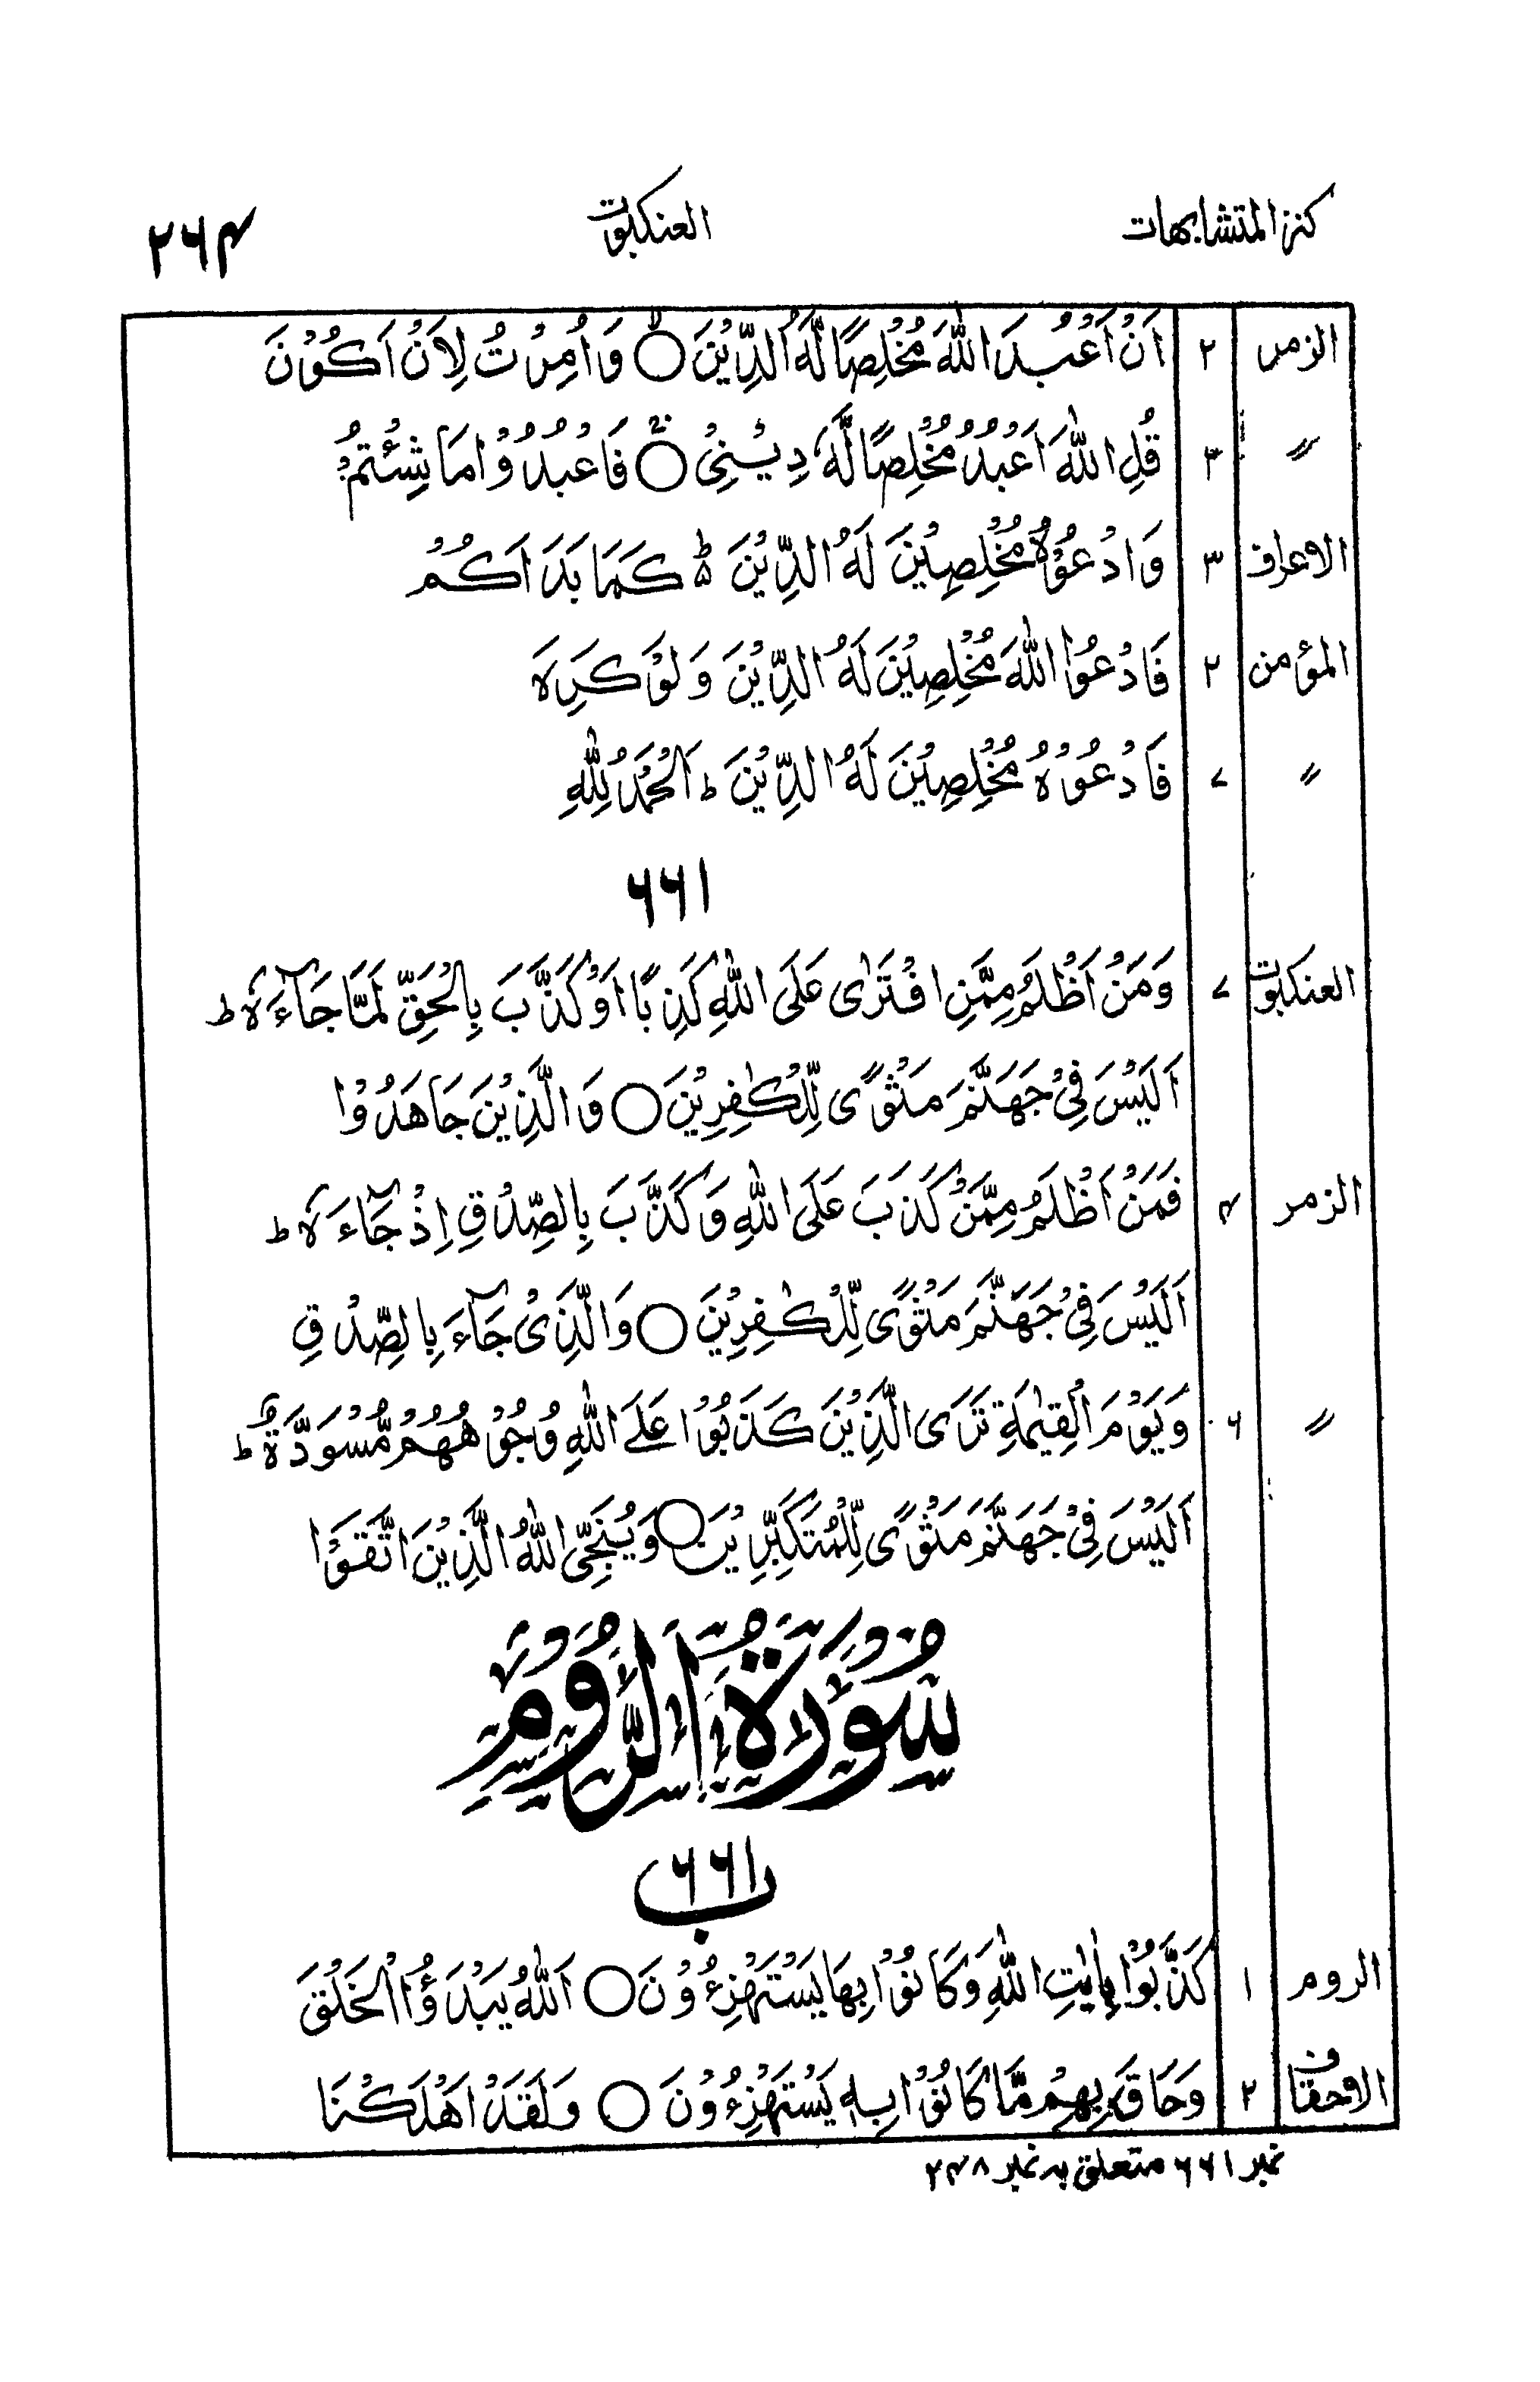 كنز المتشابهات العنكبوت ٢٦٤
الزمر ٢ اَنْ اَعْبُدَ اللّٰهَ مُخْلِصًا لَّهُ الدِّيْنَ ○ وَ اُمِرْتُ لِاَنْ اَكُوْنَ
〃 ٣ قُلِ اللّٰهَ اَعْبُدُ مُخْلِصًا لَّهٗ دِيْنِیْ ○ فَاعْبُدُوْا مَا شِئْتُمْ
الاعراف ٣ وَادْعُوْهُ مُخْلِصِيْنَ لَهُ الدِّيْنَ ؕ كَمَا بَدَاَكُمْ
المؤمن ٢ فَادْعُوا اللّٰهَ مُخْلِصِيْنَ لَهُ الدِّيْنَ وَ لَوْ كَرِهَ
〃 ٧ فَادْعُوْهُ مُخْلِصِيْنَ لَهُ الدِّيْنَ ؕ اَلْحَمْدُ لِلّٰهِ
٦٦١
العنكبوت ٧ وَمَنْ اَظْلَمُ مِمَّنِ افْتَرٰى عَلَى اللّٰهِ كَذِبًا اَوْ كَذَّبَ بِالْحَقِّ لَمَّا جَآءَهٗ ؕ
اَلَيْسَ فِیْ جَهَنَّمَ مَثْوًى لِّلْكٰفِرِيْنَ ○ وَ الَّذِيْنَ جَاهَدُوْا
الزمر ٤ فَمَنْ اَظْلَمُ مِمَّنْ كَذَبَ عَلَى اللّٰهِ وَ كَذَّبَ بِالصِّدْقِ اِذْ جَآءَهٗ ؕ
اَلَيْسَ فِیْ جَهَنَّمَ مَثْوًى لِّلْكٰفِرِيْنَ ○ وَ الَّذِیْ جَآءَ بِالصِّدْقِ
〃 ٦ وَيَوْمَ الْقِيٰمَةِ تَرَى الَّذِيْنَ كَذَبُوْا عَلَى اللّٰهِ وُجُوْهُهُمْ مُّسْوَدَّةٌ ؕ
اَلَيْسَ فِیْ جَهَنَّمَ مَثْوًى لِّلْمُتَكَبِّرِيْنَ ○ وَيُنَجِّى اللّٰهُ الَّذِيْنَ اتَّقَوْا
سُوْرَةُ الرُّوْمِ
٦٦١ ب
الروم ١ كَذَّبُوْا بِاٰيٰتِ اللّٰهِ وَ كَانُوْا بِهَا يَسْتَهْزِءُوْنَ ○ اَللّٰهُ يَبْدَؤُا الْخَلْقَ
الاحقاف ٢ وَحَاقَ بِهِمْ مَّا كَانُوْا بِهٖ يَسْتَهْزِءُوْنَ ○ وَلَقَدْ اَهْلَكْنَا
نمبر ٦٦١ متعلق به نمبر ٢٤٨